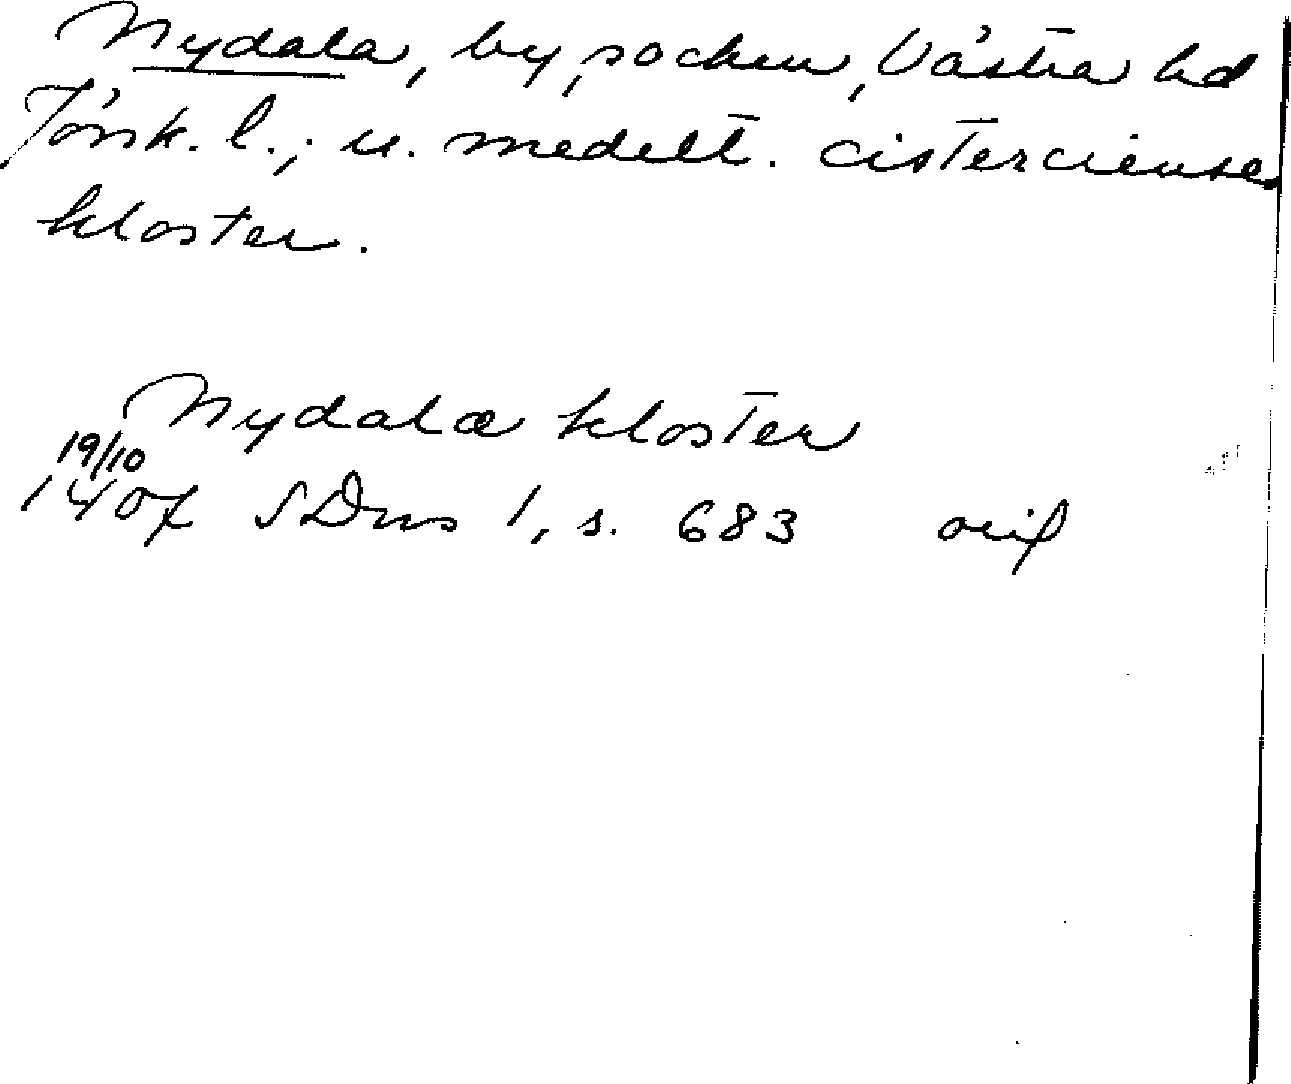 Nydala, by, socken, Västra hd
Jönk. l.; u. medelt. cistercienser
kloster.
Nydalæ kloster
19/10
1407 SDns 1, s. 683 orig